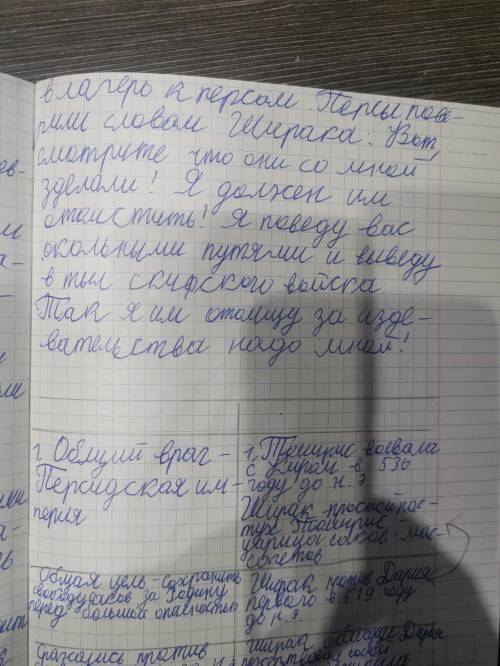 в лагерь к персам. Персы пове-
рили словам Ширака: Вот,
смотрите что они со мной
зделали! Я должен им
отомстить! Я поведу вас
окольными путями и выведу
в тыл скифского войска.
Так я им отомщу за изде-
вательства надо мной!
1. Общий враг -
Персидская им-
перия
1. Томирис воевала
с Киром в 530
году до н.э
Ширак простой пас-
тух Томирис -
царица саков - мас-
сагетов
Общая цель - сохранить
свободу саков за Родину
перед большой опасностью
Ширак против Дария
первого в 519 году
до н.э.
сражались против
Ширак обманул Дария